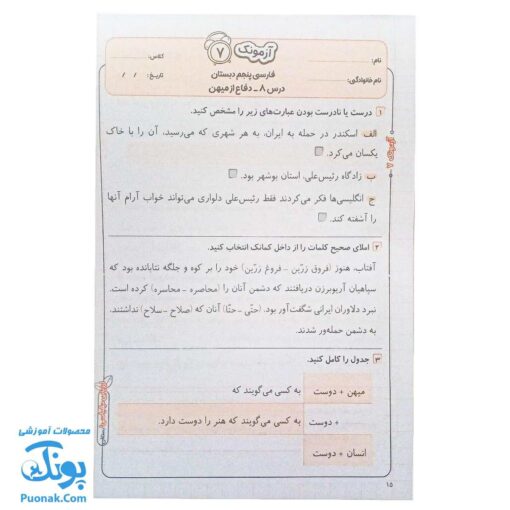 نام:
نام خانوادگی:
آزمونک ۷
فارسی پنجم دبستان
درس ۸ ـ دفاع از میهن
کلاس:
تاریخ: / /
۱ درست یا نادرست بودن عبارت‌های زیر را مشخص کنید.
الف اسکندر در حمله به ایران، به هر شهری که می‌رسید، آن را با خاک
یکسان می‌کرد.
ب زادگاه رئیس‌علی، استان بوشهر بود.
ج انگلیسی‌ها فکر می‌کردند فقط رئیس‌علی دلواری می‌تواند خواب آرام آنها
را آشفته کند.
۲ املای صحیح کلمات را از داخل کمانک انتخاب کنید.
آفتاب، هنوز (فروق زرّین ـ فروغ زرّین) خود را بر کوه و جلگه نتابانده بود که
سپاهیان آریوبرزن دریافتند که دشمن آنان را (محاصره ـ محاسره) کرده است.
نبرد دلاوران ایرانی شگفت‌آور بود. (حتّی ـ حتّا) آنان که (صلاح ـ سلاح) نداشتند،
به دشمن حمله‌ور شدند.
۳ جدول را کامل کنید.
میهن + دوست به کسی می‌گویند که
+ دوست به کسی می‌گویند که هنر را دوست دارد.
انسان + دوست
۱۵
آزمونک ۷
محصولات آموزشی
پونک
Puonak.Com